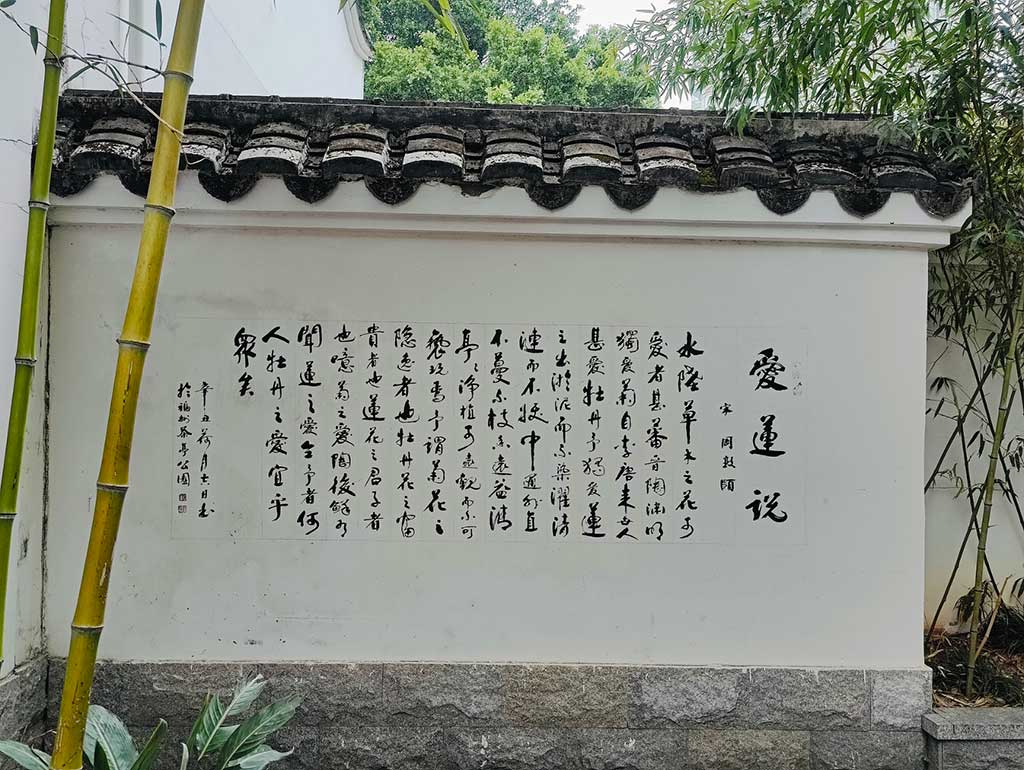 愛蓮说
宋 周敦頤
水陸草木之花可
愛者甚蕃晋陶渊明
獨爱菊自李唐来世人
甚爱牡丹予獨爱蓮
之出淤泥而不染濯清
漣而不妖中通外直
不蔓不枝香遠益清
亭〻净植可遠觀而不可
亵玩焉予謂菊花之
隐逸者也牡丹花之富
貴者也蓮花之君子者
也噫菊之愛陶後鮮有
聞蓮之愛仝予者何
人牡丹之愛宜乎
眾矣
辛丑荷月吉日书
於福州茶亭公園